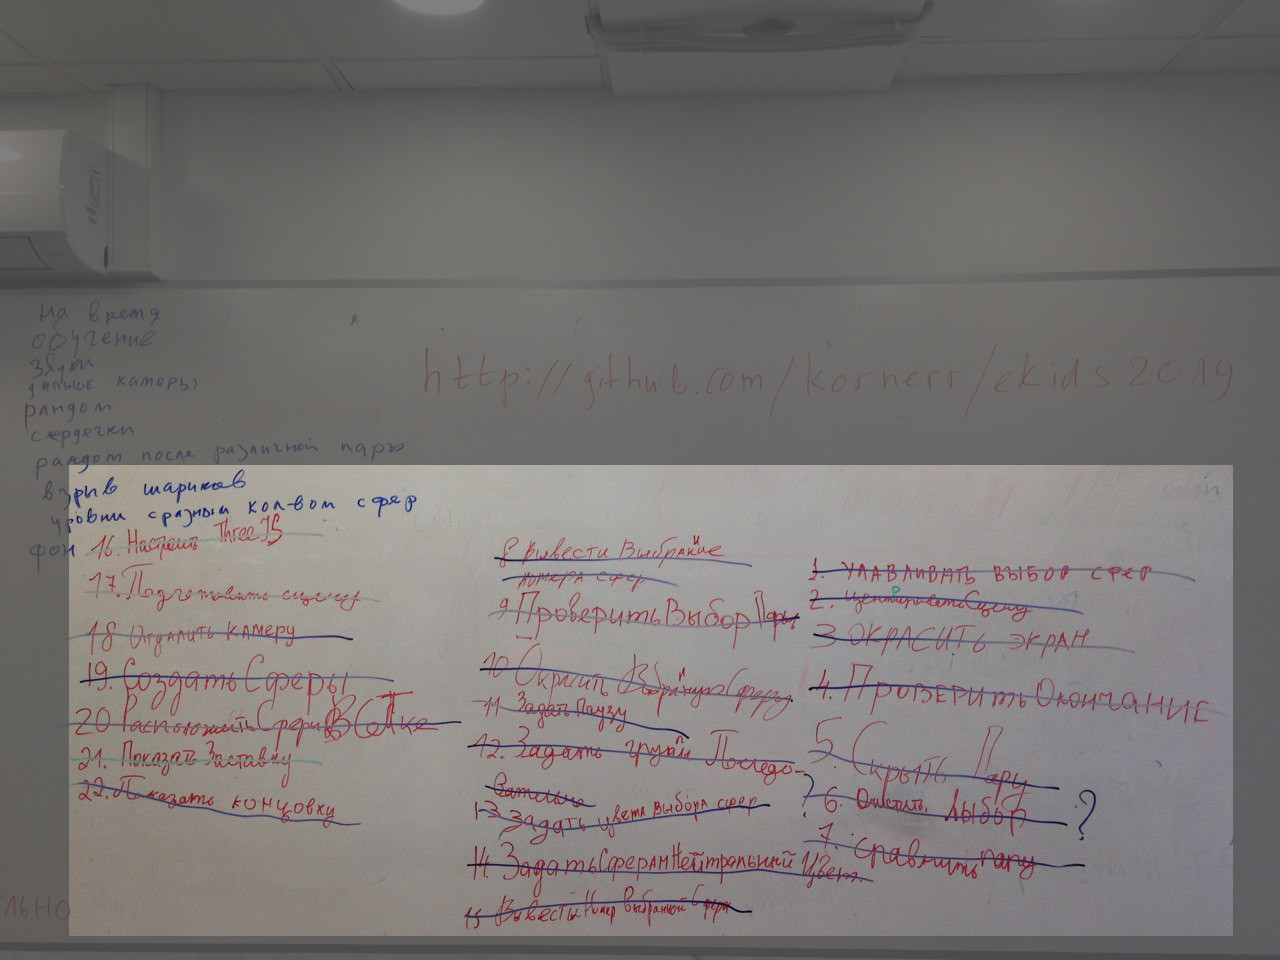 На время
обучение
звуки
дальше камеры
рандом
сердечки
рандом после различной пары
взрыв шариков
уровни с разным кол-вом сфер
фон
http://github.com/kornerr/ekids2019
16. Настроить ThreeJS
17. Подготовить сцену
18 Отдалить камеру
19. Создать Сферы
20 Расположить Сферы В Сетке
21. Показать Заставку
22. Показать концовку
8 Вывести Выбранные
номера сфер
9 Проверить Выбор Пары
10 Окрасить Выбранную Сферу
11 Задать Паузу
12. Задать групй Последо-
вательно
13 Задать цвета выбора сфер
14. Задать Сферам Нейтральный Цвет.
15 Вывести Номер Выбранной Сферы
1. УЛАВЛИВАТЬ ВЫБОР СФЕР
2. Центрировать Сцену
3 ОКРАСИТЬ ЭКРАН
4. Проверить Окончание
5. Скрыть Пару
? 6. Очистить Выбор ?
7. Сравнить пару
ЛЬНО